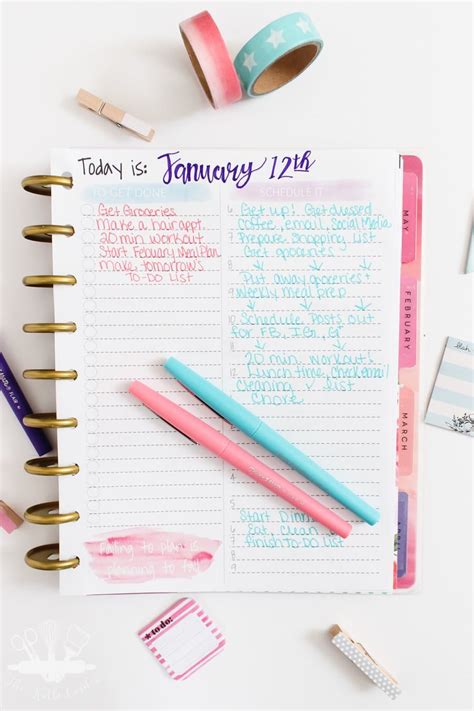 Today is: January 12th
TO GET DONE
Get Groceries
Make a hair appt.
20 min workout
Start Febuary Meal Plan
Make tomorrow's
TO-DO List
SCHEDULE IT
6 Get up! Get dressed
Coffee, email, Social Media
7 Prepare Shopping List
Get groceries
Put away groceries +
9 Weekly meal prep
10 Schedule Posts out
for FB, IG, G+
20 min. workout!
Lunch time, Check email
Cleaning + list
Chore
5
Start Dinner
6 Eat, Clean
7 Finish TO-DO List
8
9
failing to plan is
planning to fail
MAY
FEBRUARY
MARCH
to do: